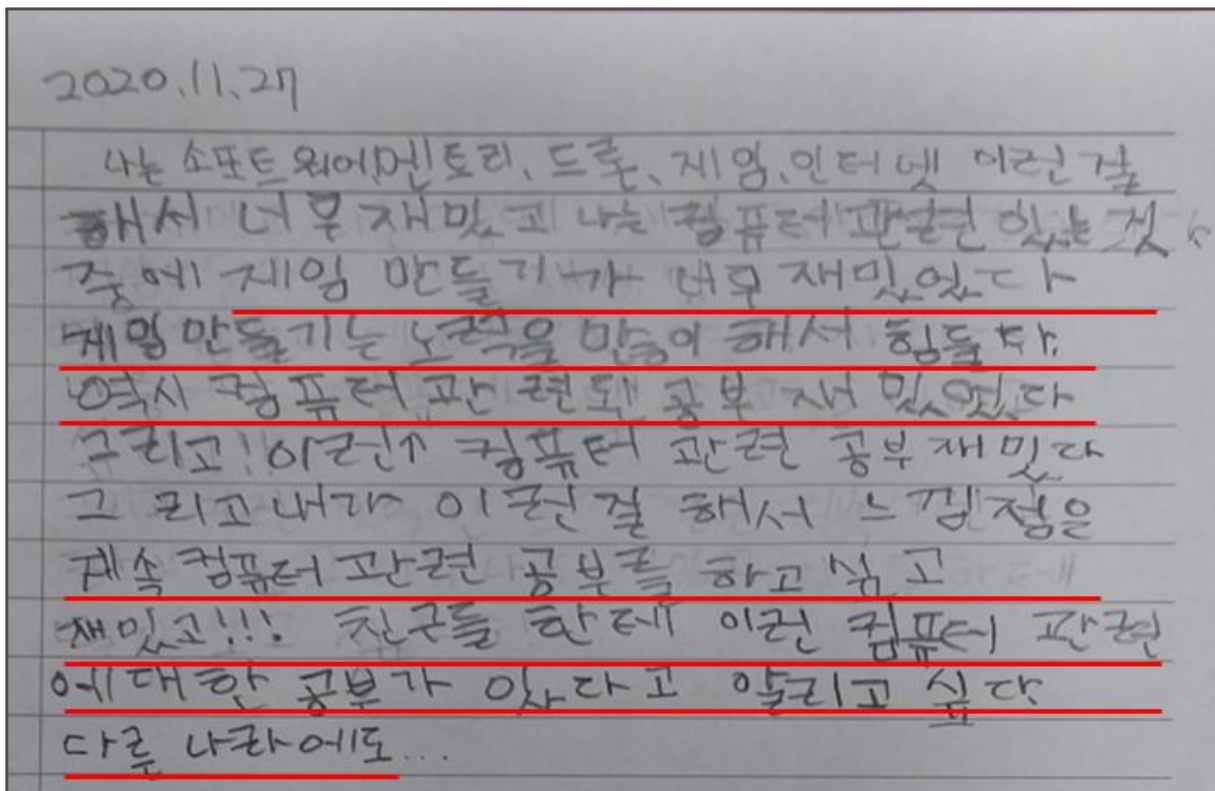 2020.11.27
나는 소포트웨어,멘토리, 드론, 게임, 인터넷 이런걸
해서 너무 재밌고 나는 컴퓨터 관련 있는 것
중에 게임 만들기가 너무 재밌었다
게임만들기는 노력을 많이 해서 힘들다.
역시 컴퓨터 관련된 공부 재밌었다
그리고! 이런↑ 컴퓨터 관련 공부재밌다
그리고내가 이런걸 해서 느낌점은
계속컴퓨터관련 공부를 하고 싶고
재밌고!!! 친구들 한테 이런 컴퓨터 관련
에대한 공부가 있다고 알리고 싶다
다른 나라에도...